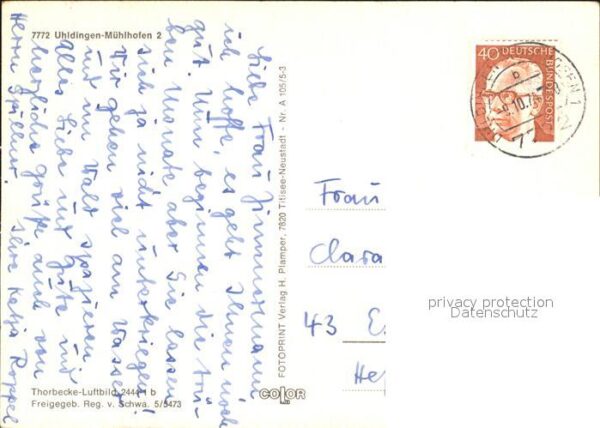 7772 Uhldingen-Mühlhofen 2
Liebe Frau Zimmermann
ich hoffe, es geht Ihnen noch
gut. Nun beginnen die trü-
ben Monate aber Sie lassen
sich ja nicht unterkriegen!
Wir gehen viel am Wasser
und im Wald spazieren
alles Liebe und Gute und
herzliche Grüße auch von
Herrn
Ihre Katja Roppel
Thorbecke-Luftbild
b
Freigegeb. Reg. v. Schwa. 5/5473
FOTOPRINT Verlag H. Plamper, 7820 Titisee-Neustadt - Nr. A 105/5-3
COLOR
40 DEUTSCHE
BUNDESPOST
Frau
Clara
43 E
He
privacy protection
Datenschutz